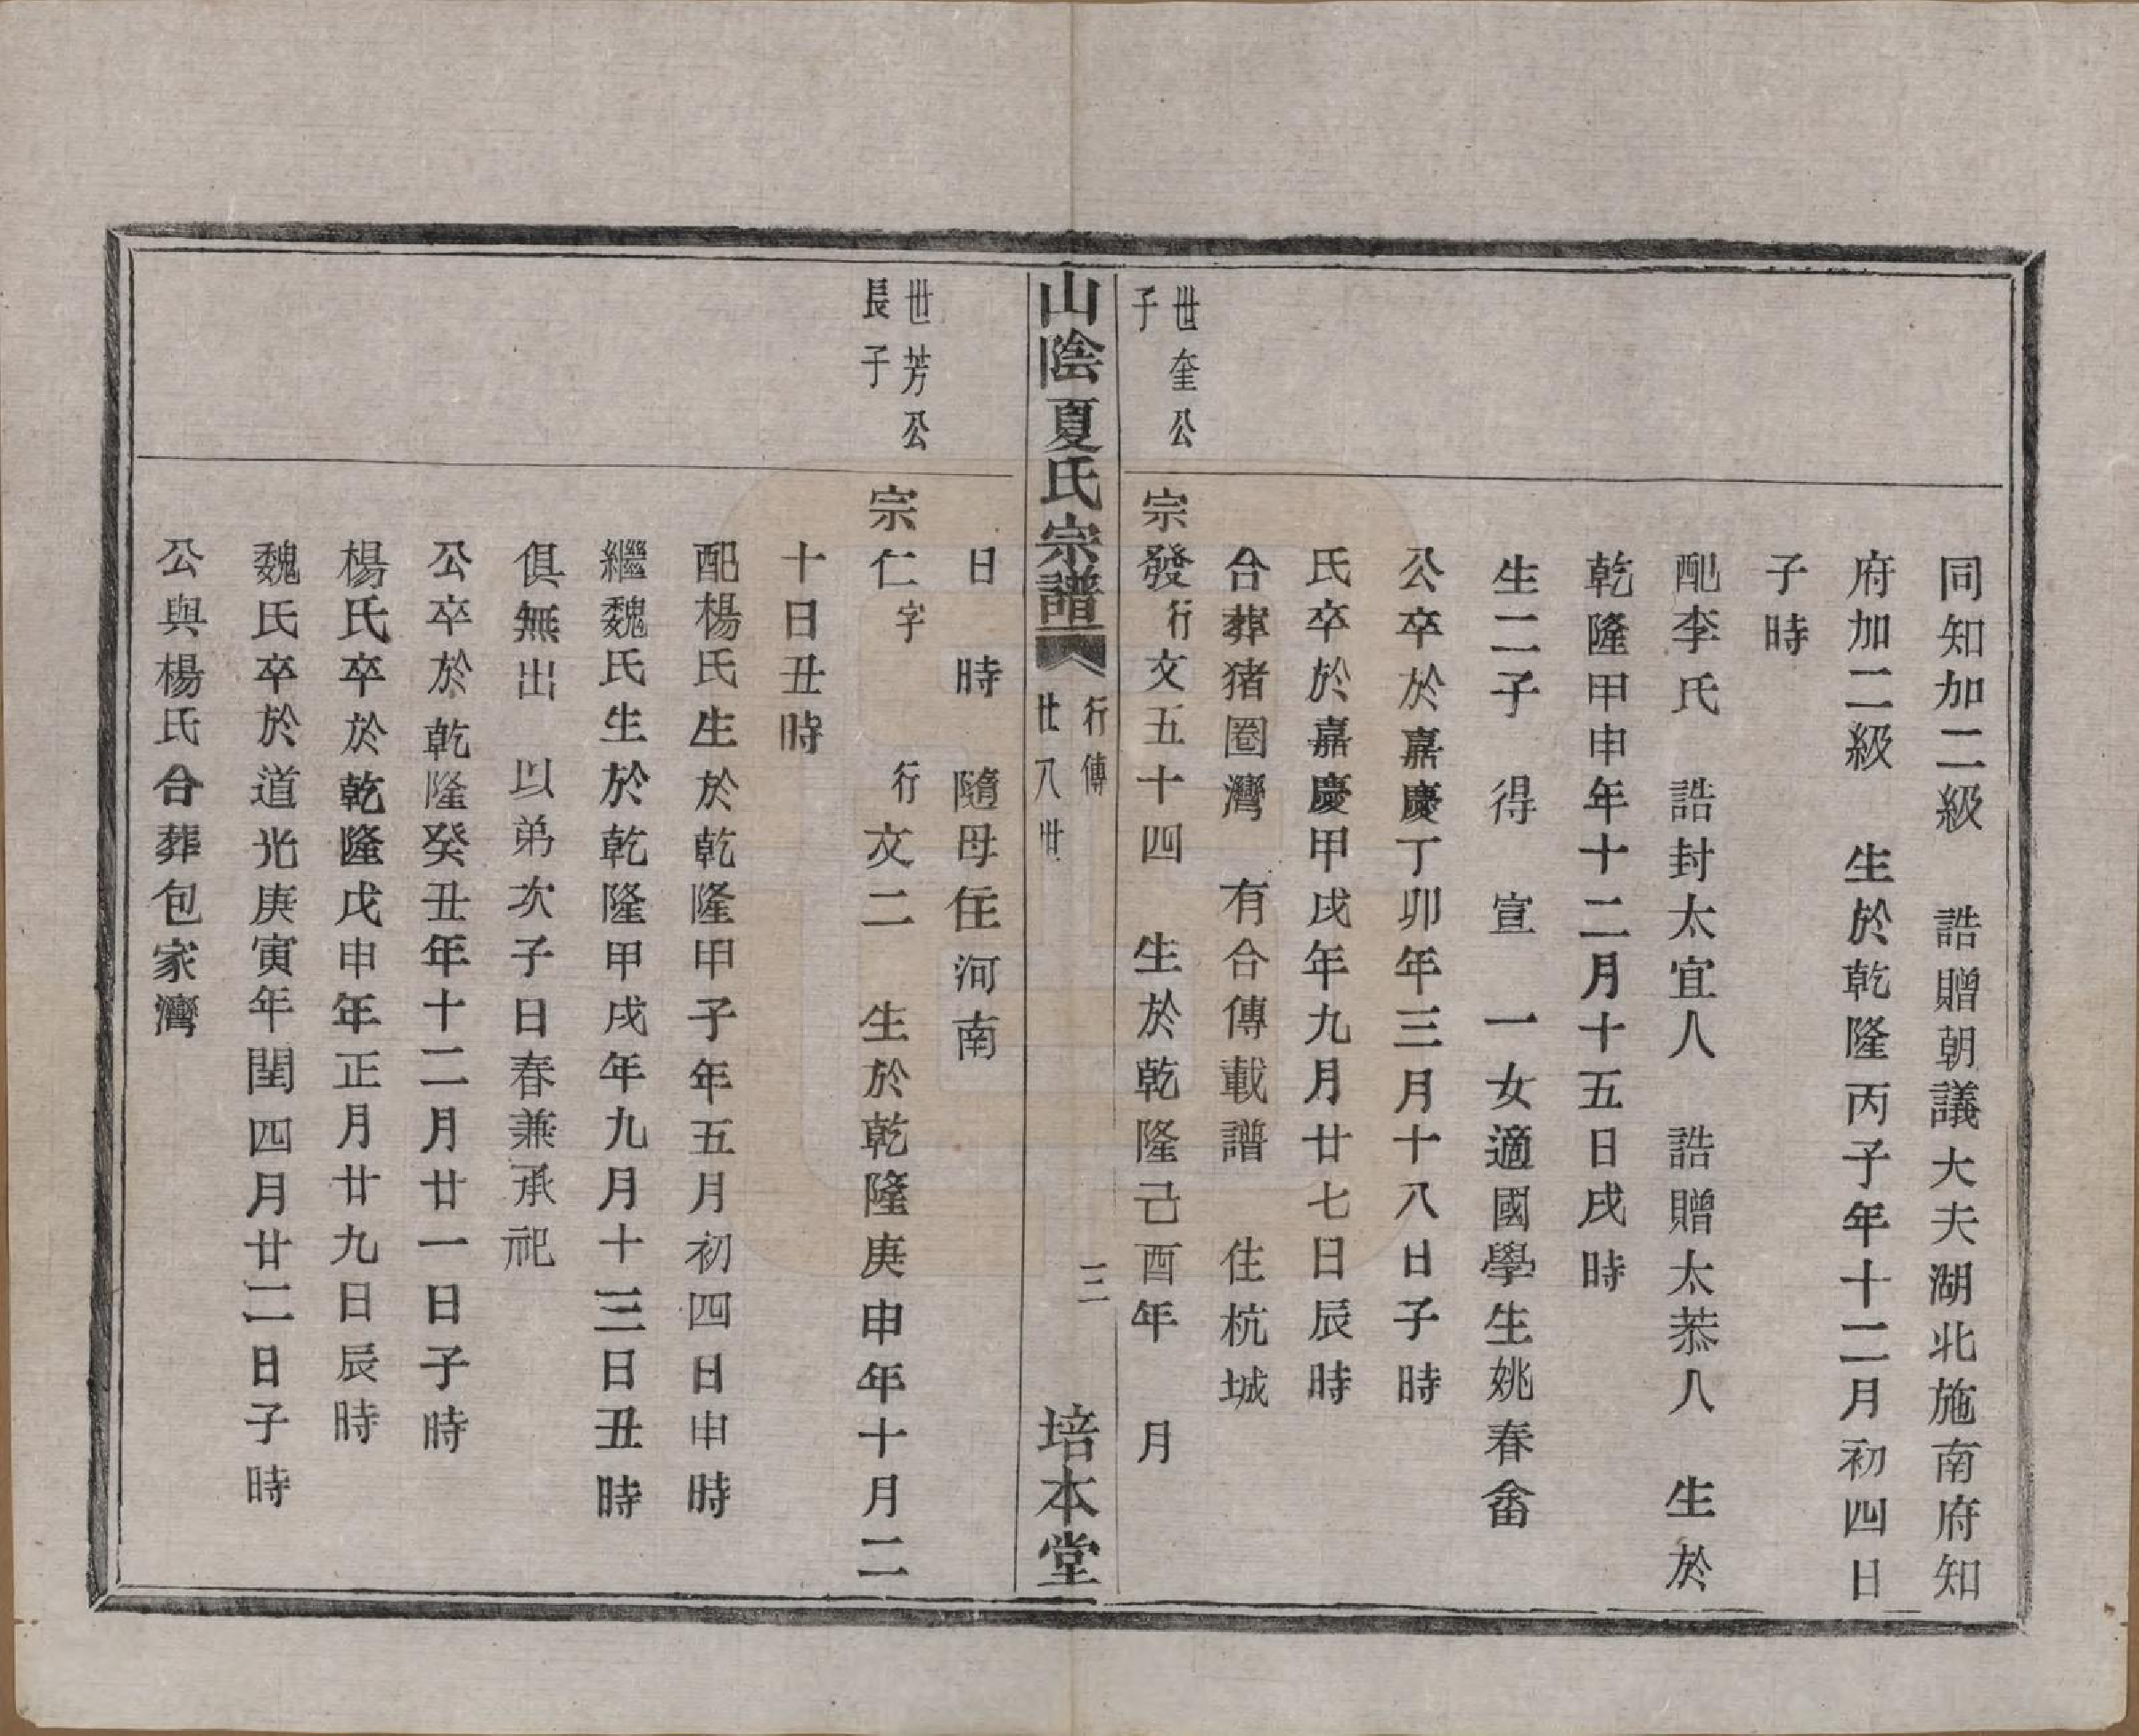 同知加二級　誥贈朝議大夫湖北施南府知
府加二級　生於乾隆丙子年十二月初四日
子時
配李氏　誥封太宜人　誥贈太恭人　生於
乾隆甲申年十二月十五日戌時
生二子　得　宣　一女適國學生姚春畬
公卒於嘉慶丁卯年三月十八日子時
氏卒於嘉慶甲戌年九月廿七日辰時
合葬猪圈灣　有合傳載譜　住杭城
世奎公
子
宗發行文五十四　生於乾隆己酉年　月
山陰夏氏宗譜
行傳
廿八世
三
培本堂
日　時　隨母住河南
世芳公
長子
宗仁字　行文二　生於乾隆庚申年十月二
十日丑時
配楊氏生於乾隆甲子年五月初四日申時
繼魏氏生於乾隆甲戌年九月十三日丑時
俱無出　以弟次子日春兼承祀
公卒於乾隆癸丑年十二月廿一日子時
楊氏卒於乾隆戊申年正月廿九日辰時
魏氏卒於道光庚寅年閏四月廿二日子時
公與楊氏合葬包家灣